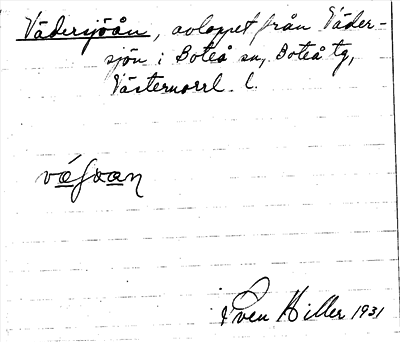 Vädersjöån, avloppet från Väder-
sjön i Boteå sn, Boteå tg,
Västernorrl. l.
Sven Hiller 1931